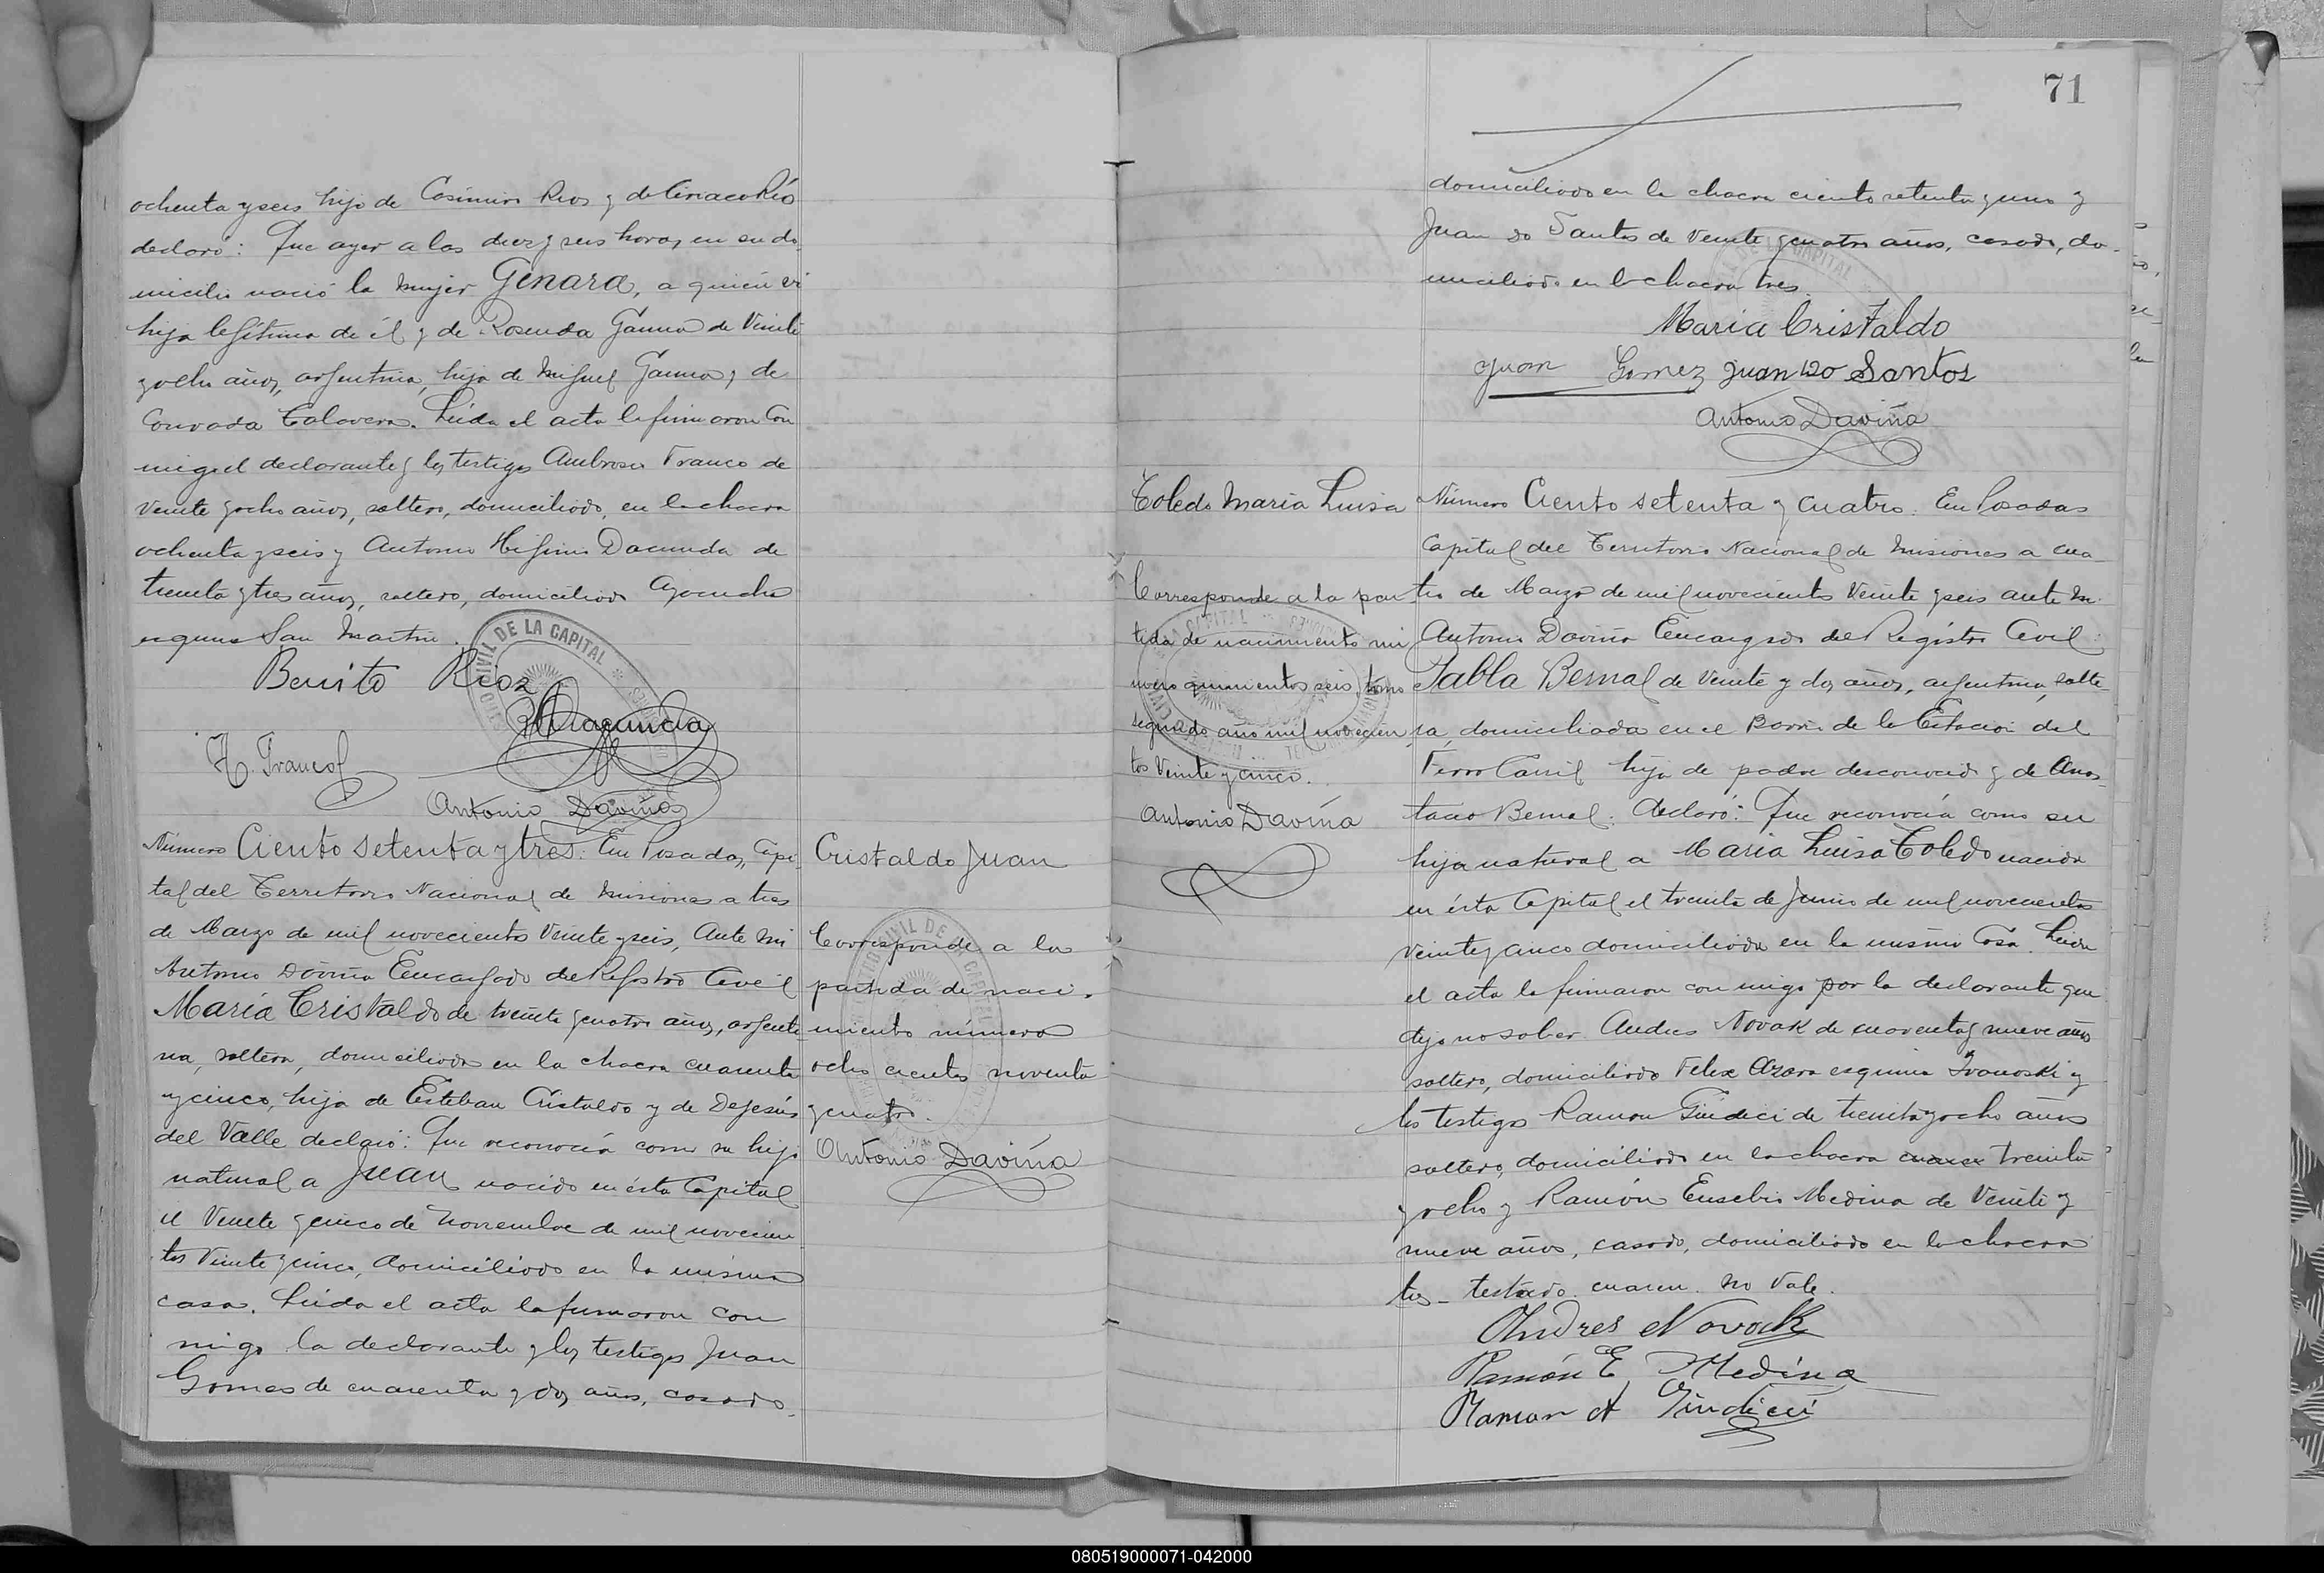 ochenta y seis hijo de Casimiro Rios y de Ciriaca Rió
declaró: Que ayer a las diez y seis horas, en su do-
micilio nació la mujer Genara, a quien vi
hija legítima de él y de Rosenda Gauna de Veinte
y ocho años, argentina, hija de Miguel Gauna y de
Talavera. Leida el acta la firmaron con
migo el declarante y los testigos Ambrosio Franco de
veinte y ocho años, soltero, domiciliado, en la chacra
ochenta y seis y Antonio Higinio Dacunda de
treinta y tres años, soltero, domiciliado Ayacucho
esquina San Martin.
Benito Rioz
Dacunda
H. Franco
Antonio Daviña
Número Ciento setenta y tres. En Posadas, Capi-
tal del Territorio Nacional de Misiones a tres
de Marzo de mil novecientos Veinte y seis, Ante mi
Antonio Daviña Encargado del Registro Civil
María Cristaldo de treinta y cuatro años, argenti-
na, soltera, domiciliada en la chacra cuarenta
y cinco, hija de Esteban Cristaldo y de Dejesús
del Valle declaró: Que reconocía como su hijo
natural a Juan nacido en ésta Capital
el Veinte y cinco de Noviembre de mil novecien
tos Veinte y cinco, domiciliado en la misma
casa. Leida el acta la firmaron con
migo la declarante y los testigos Juan
Gomes de cuarenta y dos años, casado
Cristaldo Juan
Corresponde a la
partida de naci-
miento número
ocho cientos noventa
y cuatro.
Antonio Daviña
71
domiciliado en la chacra ciento setenta y uno y
Juan do Santos de Veinte y cuatro años, casado, do-
miciliado en la chacra tres.
Maria Cristaldo
Juan Gomez Juan do Santos
Antonio Daviña
Toledo María Luisa
Corresponde a la par
tida de nacimiento nú
mero quinientos seis, tomo
segundo año mil novecien
tos Veinte y cinco.
Antonio Daviña
Número Ciento setenta y cuatro. En Posadas
Capital del Territorio Nacional de Misiones a cua
tro de Marzo de mil novecientos Veinte y seis ante mi
Antonio Daviña Encargado del Registro Civil:
Pabla Bernal de Veinte y dos años, argentina, solte-
ra, domiciliada en el Barrio de la Estación del
Ferro Carril hija de padre desconocido y de Anas-
tacia Bernal. declaró: Que reconocía como su
hija natural a María Luisa Toledo nacida
en ésta Capital el treinta de Junio de mil novecientos
veinte y cinco domiciliada en la misma Casa. Leida
el acta la firmaron con migo por la declarante que
dijo no saber Andres Novak de cuarenta y nueve años
soltero, domiciliado Felix Azara esquina Ivanoski y
los testigos Ramon Giudici de treinta y ocho años
soltero, domiciliado en la chacra cuaren treinta
y ocho y Ramón Eusebio Medina de Veinte y
nueve años, casado, domiciliado en la chacra
tres - testado. cuaren. no Vale.
Andres Novak
Ramón E. Medina
Ramon A Giudici
080519000071-042000